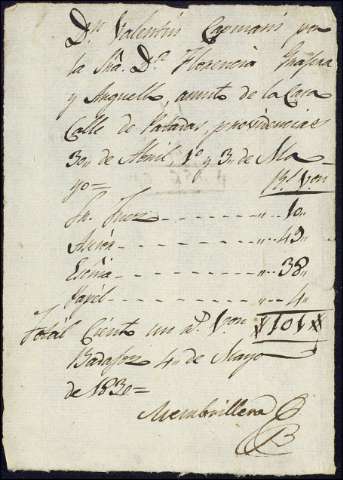 Dn. Valentin Capmani por
la Sra. Da. Florencia
y Anguell, asunto de la Casa
Calle de Patadas, providencias
30, de Abril, 1º y 3, de Ma-
yo= Rs. Von.
Sr. Juez - - - - - - - - „ 10„
- - - - - - - - „ 49„
Escña - - - - - - - - „ 38„
Papél - - - - - - - - „ 4„
Total Ciento un rs. Von. 101
Badajoz 4, de Mayo
de 1830=
Membrillera